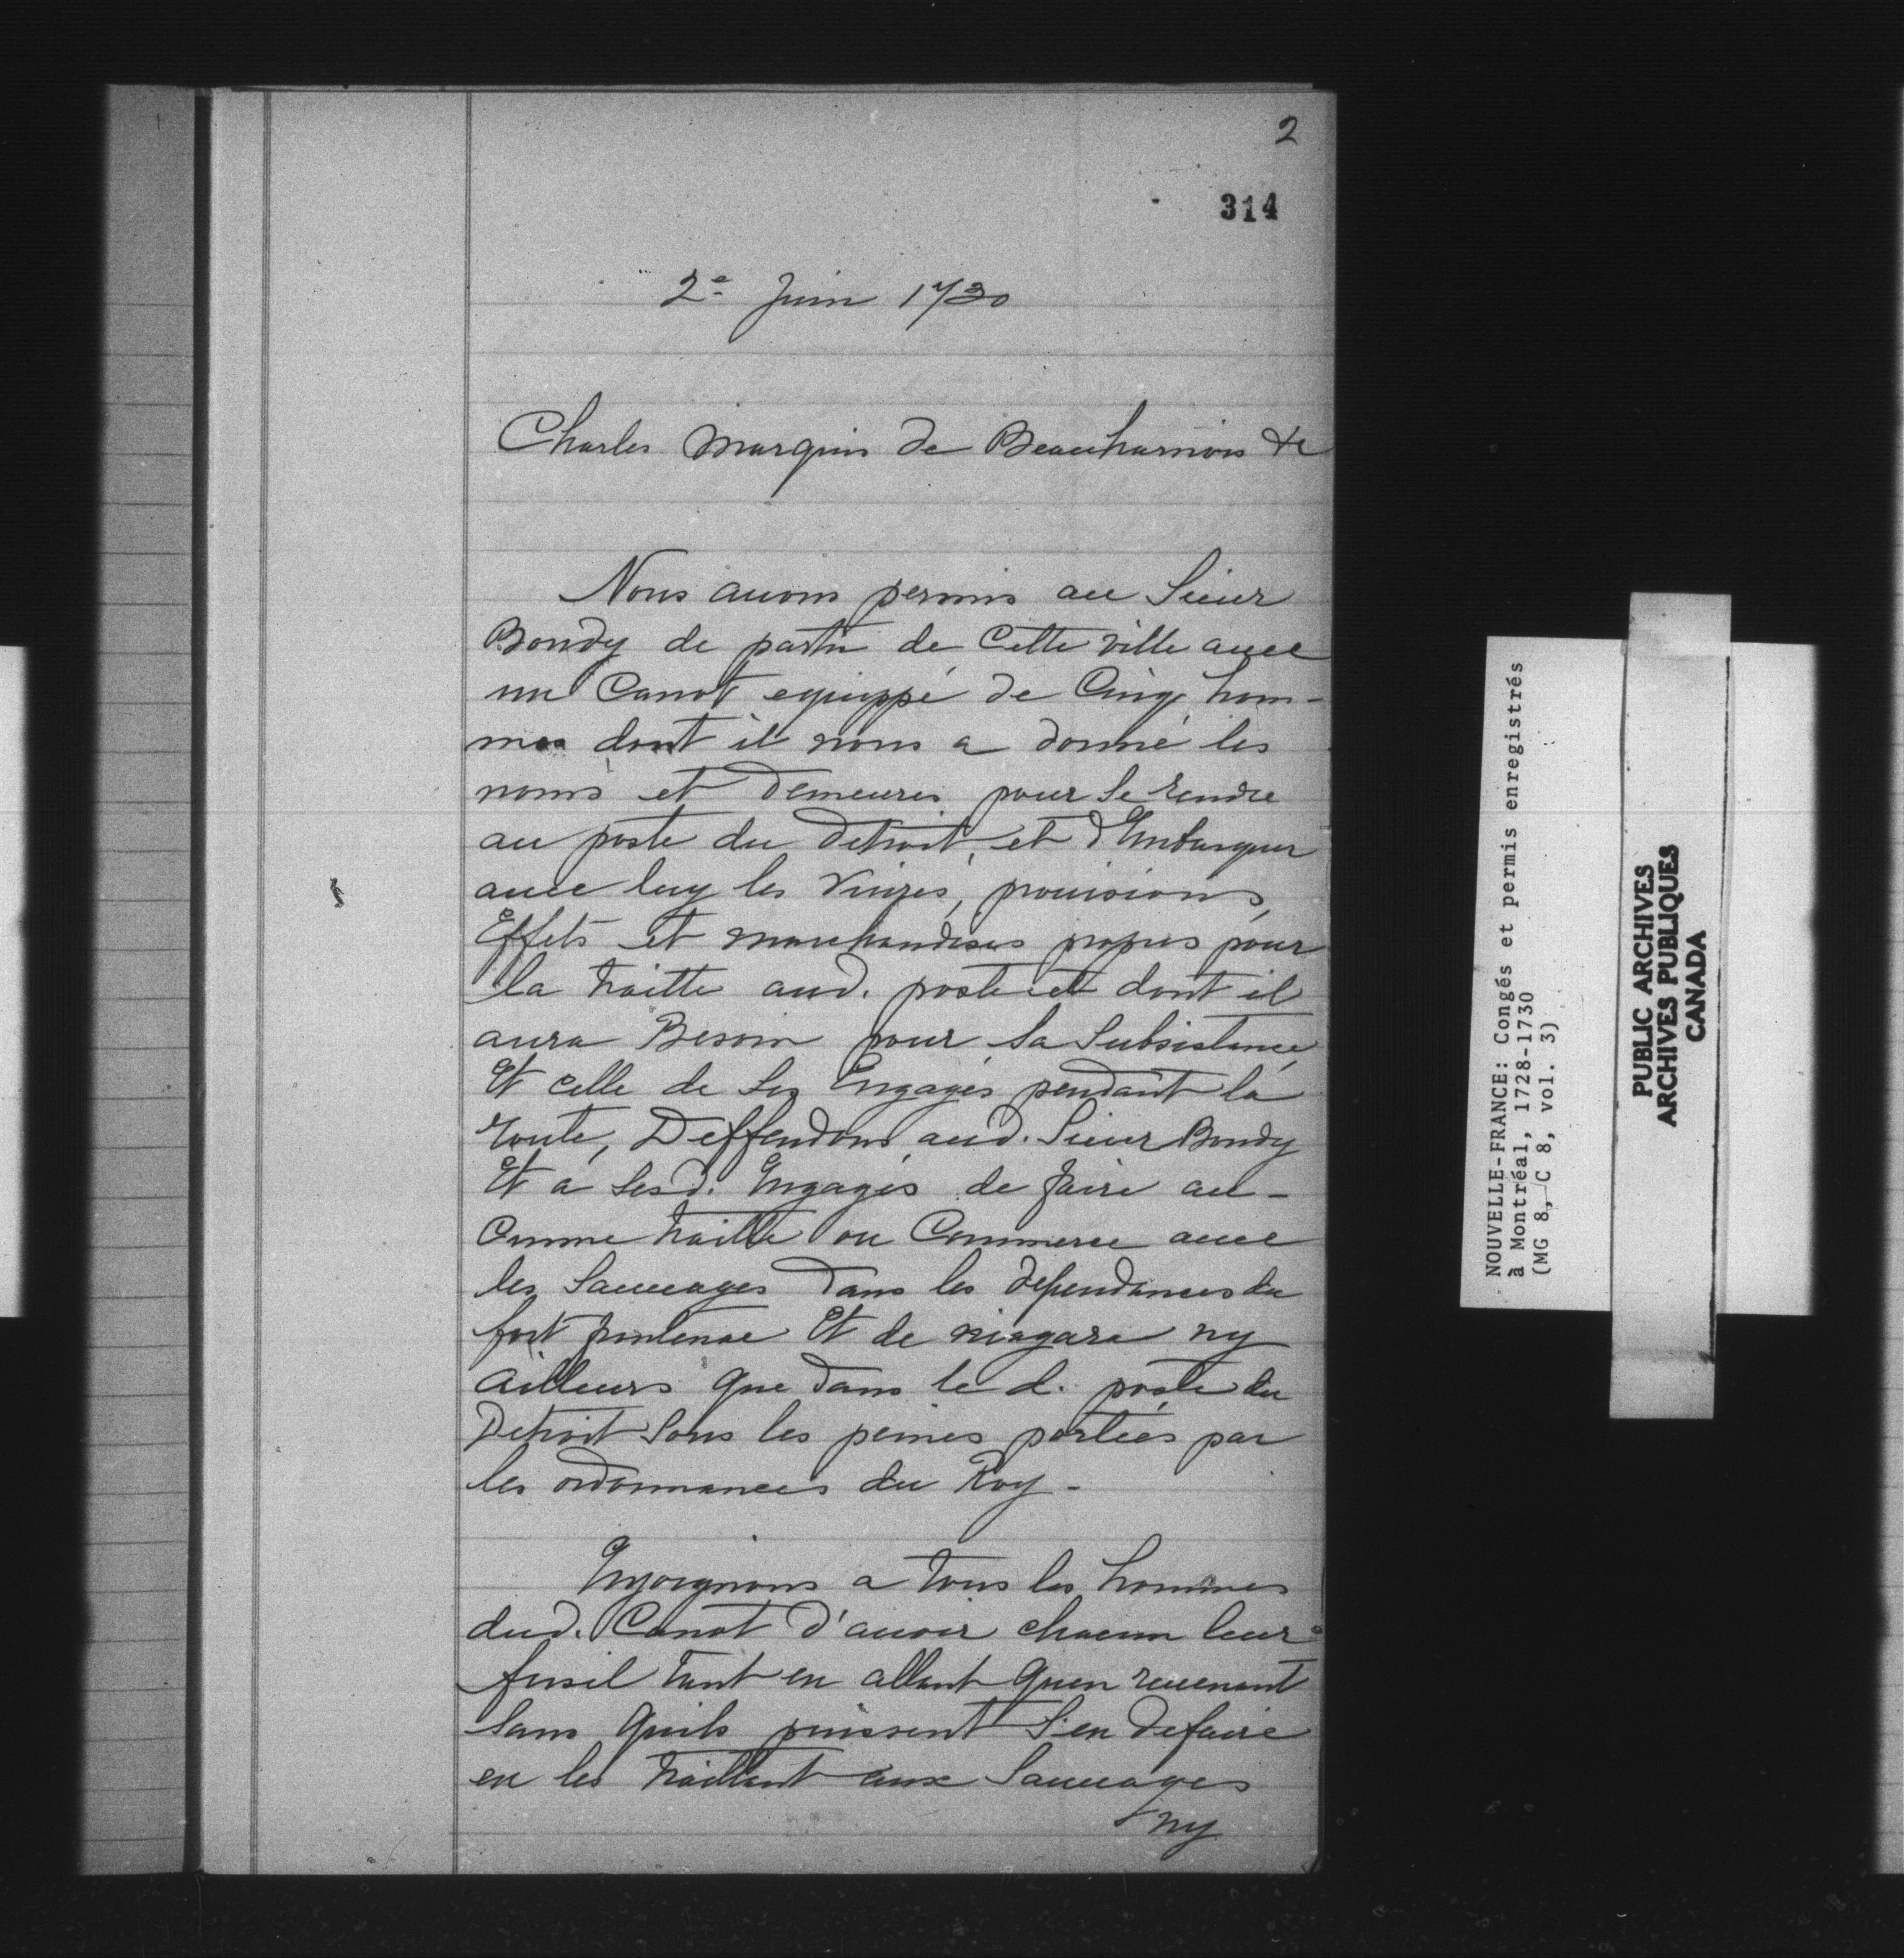 2
314
2e Juin 1730
Charles Marquis de Beauharnois &c
Nous auons permis au Sieur
Bondy de partir de Cette ville auec
un Canot equippé de Cinq hom-
mes dont il nous a donné les
noms et demeures pour se rendre
au poste du détroit, et d'Embarquer
auec luy les Viures, prouisions,
Effets et marchandises propres pour
la traitte aud. poste et dont il
aura Besoin pour sa Subsistance
Et celle de Ses Engagés pendant la
route, Deffendons aud. Sieur Bondy
Et a Sesd. Engagés de faire au-
cunne traitte ou Commerce auec
les Sauuages dans les dependances du
fort frontenac Et de niagara ny
ailleurs que dans le d. poste du
Detroit Sous les peines portées par
les ordonnances du Roy -
Enjoignons a tous les hommes
dud. Canot d'auoir chacun leur
fusil tant en allant quen reuenant
Sans quils puissent S'en defaire
en les traittant aux Sauuages
ny
NOUVELLE-FRANCE: Congés et permis enregistrés
à Montréal, 1728-1730
(MG 8, C 8, vol. 3)
PUBLIC ARCHIVES
ARCHIVES PUBLIQUES
CANADA